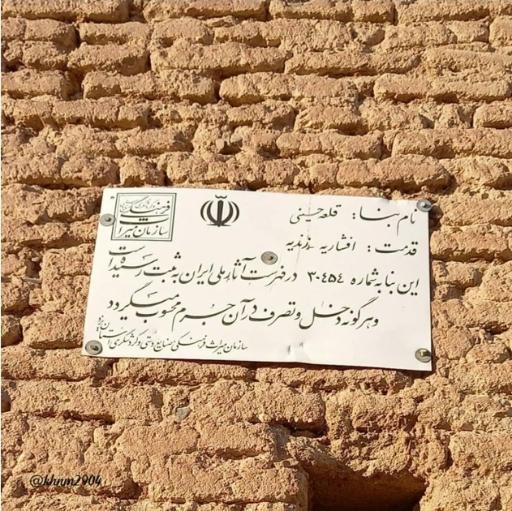 سازمان میراث فرهنگی
نام بنا: قلعه حسینی
قدمت: افشاریه زندیه
این بنا به شماره ۳۰۴۵۴ در فهرست آثار ملی ایران به ثبت رسیده است
و هرگونه دخل و تصرف در آن جرم محسوب میگردد
سازمان میراث فرهنگی صنایع دستی و گردشگری استان یزد
@khnm2904